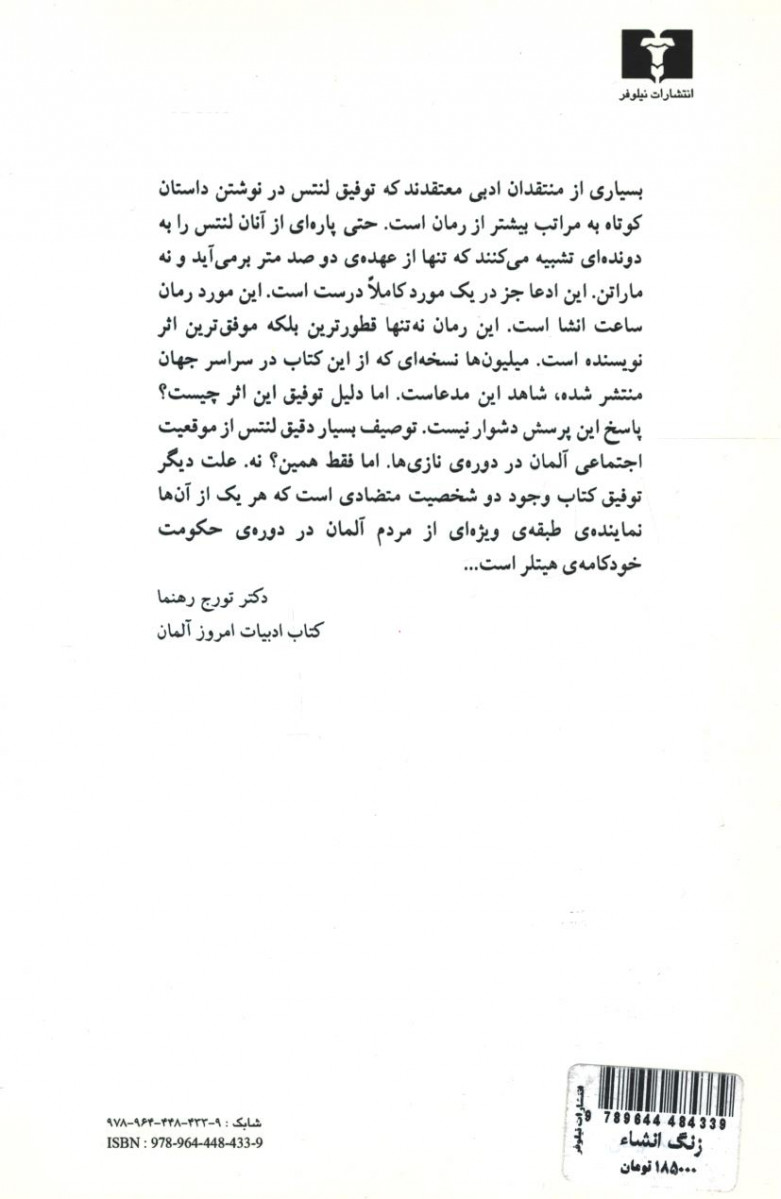 انتشارات نیلوفر
بسیاری از منتقدان ادبی معتقدند که توفیق لنتس در نوشتن داستان
کوتاه به مراتب بیشتر از رمان است. حتی پاره‌ای از آنان لنتس را به
دونده‌ای تشبیه می‌کنند که تنها از عهده‌ی دو صد متر برمی‌آید و نه
ماراتن. این ادعا جز در یک مورد کاملاً درست است. این مورد رمان
ساعت انشا است. این رمان نه‌تنها قطورترین بلکه موفق‌ترین اثر
نویسنده است. میلیون‌ها نسخه‌ای که از این کتاب در سراسر جهان
منتشر شده، شاهد این مدعاست. اما دلیل توفیق این اثر چیست؟
پاسخ این پرسش دشوار نیست. توصیف بسیار دقیق لنتس از موقعیت
اجتماعی آلمان در دوره‌ی نازی‌ها. اما فقط همین؟ نه. علت دیگر
توفیق کتاب وجود دو شخصیت متضادی است که هر یک از آن‌ها
نماینده‌ی طبقه‌ی ویژه‌ای از مردم آلمان در دوره‌ی حکومت
خودکامه‌ی هیتلر است...
دکتر تورج رهنما
کتاب ادبیات امروز آلمان
شابک : ۹-۴۳۳-۴۴۸-۹۶۴-۹۷۸
ISBN : 978-964-448-433-9
انتشارات نیلوفر
9 789644 484339
زنگ انشاء
۱۸۵۰۰۰ تومان